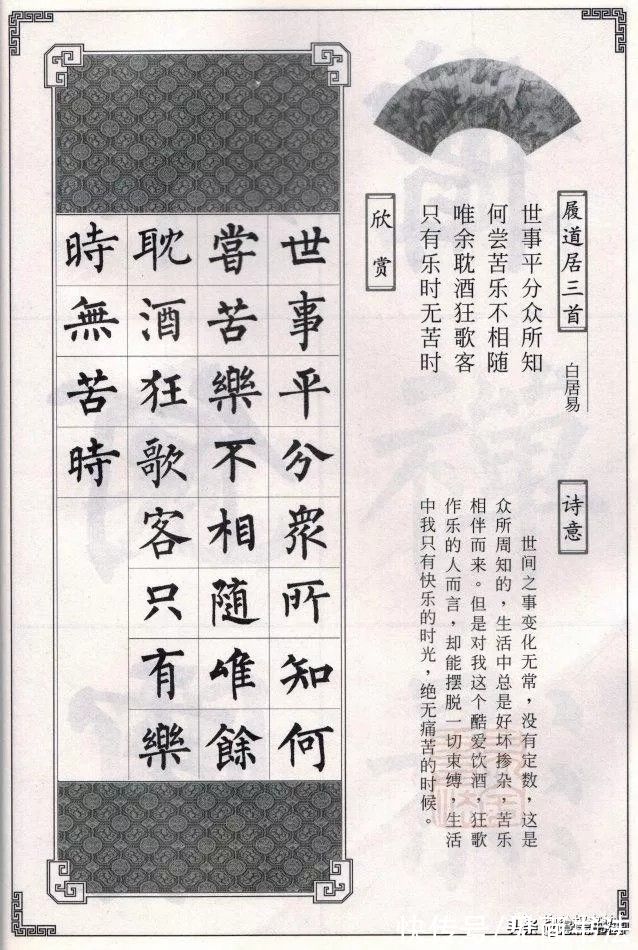 履道居三首
白居易
世事平分众所知
何尝苦乐不相随
唯余耽酒狂歌客
只有乐时无苦时
诗意
世间之事变化无常，没有定数，这是
众所周知的，生活中总是好坏掺杂，苦乐
相伴而来。但是对我这个酷爱饮酒，狂歌
作乐的人而言，却能摆脱一切束缚，生活
中我只有快乐的时光，绝无痛苦的时候。
欣赏
世事平分眾所知何
嘗苦樂不相隨唯餘
耽酒狂歌客只有樂
時無苦時